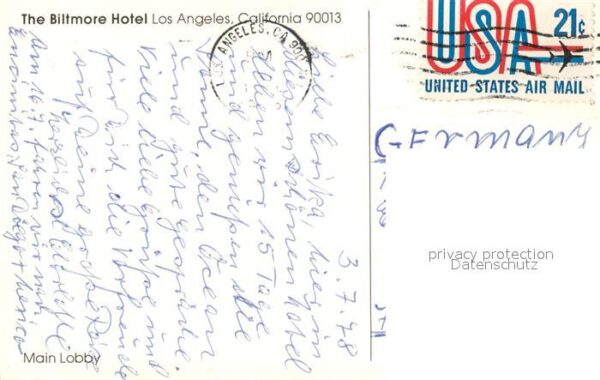 The Biltmore Hotel Los Angeles, California 90013
LOS ANGELES, CA 900
USA 21c
UNITED STATES AIR MAIL
GERMANY
privacy protection
Datenschutz
3.7.78
Liebe Erika, hier in
diesem schönen Hotel
leben wir 15 Tage
und genießen die
Sonne, den Ocean
und gute Gespräche.
Viele liebe Grüße und
für Dich die Vorfreude
auf Deine große Reise
Am 16.7. fahren wir
Main Lobby